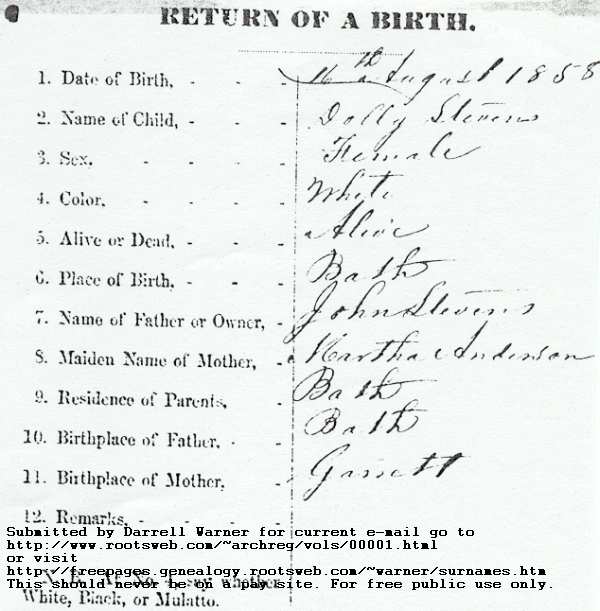 RETURN OF A BIRTH.
1. Date of Birth, - - - 16th August 1858
2. Name of Child, - - - Dolly Stevens
3. Sex, - - - - Female
4. Color, - - - - White
5. Alive or Dead, - - - Alive
6. Place of Birth, - - - Bath
7. Name of Father or Owner, - John Stevens
8. Maiden Name of Mother, - Martha Anderson
9. Residence of Parents, - Bath
10. Birthplace of Father, - - Bath
11. Birthplace of Mother, - Garrett
12. Remarks, - - - -
Submitted by Darrell Warner for current e-mail go to
http://www.rootsweb.com/~archreg/vols/00001.html
or visit
http://freepages.genealogy.rootsweb.com/~warner/surnames.htm
This should never be on a pay site. For free public use only.
whether
White, Black, or Mulatto.